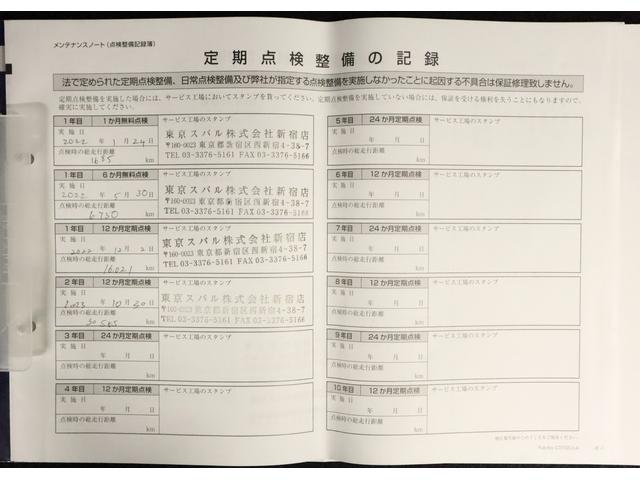 メンテナンスノート（点検整備記録簿）
定期点検整備の記録
法で定められた定期点検整備、日常点検整備及び弊社が指定する点検整備を実施しなかったことに起因する不具合は保証修理致しません。
定期点検整備を実施した場合には、サービス工場においてスタンプを貰ってください。定期点検整備を実施していない場合には、保証を受ける権利を失うことにもなりますので、
確実に実施してください。
1年目 1か月無料点検 サービス工場のスタンプ
実施日
2022年 1月24日
点検時の総走行距離
1685 km
東京スバル株式会社新宿店
〒160-0023 東京都新宿区西新宿4-38-7
TEL 03-3376-5161 FAX 03-3376-5166
1年目 6か月無料点検 サービス工場のスタンプ
実施日
2022年 5月30日
点検時の総走行距離
6730 km
東京スバル株式会社新宿店
〒160-0023 東京都新宿区西新宿4-38-7
TEL 03-3376-5161 FAX 03-3376-5166
1年目 12か月定期点検 サービス工場のスタンプ
実施日
2022年 12月2日
点検時の総走行距離
16021 km
東京スバル株式会社新宿店
〒160-0023 東京都新宿区西新宿4-38-7
TEL 03-3376-5161 FAX 03-3376-5166
2年目 12か月定期点検 サービス工場のスタンプ
実施日
2023年 10月30日
点検時の総走行距離
30585 km
東京スバル株式会社新宿店
〒160-0023 東京都新宿区西新宿4-38-7
TEL 03-3376-5161 FAX 03-3376-5166
3年目 24か月定期点検 サービス工場のスタンプ
実施日
年 月 日
点検時の総走行距離
km
4年目 12か月定期点検 サービス工場のスタンプ
実施日
年 月 日
点検時の総走行距離
km
5年目 24か月定期点検 サービス工場のスタンプ
実施日
年 月 日
点検時の総走行距離
km
6年目 12か月定期点検 サービス工場のスタンプ
実施日
年 月 日
点検時の総走行距離
km
7年目 24か月定期点検 サービス工場のスタンプ
実施日
年 月 日
点検時の総走行距離
km
8年目 12か月定期点検 サービス工場のスタンプ
実施日
年 月 日
点検時の総走行距離
km
9年目 24か月定期点検 サービス工場のスタンプ
実施日
年 月 日
点検時の総走行距離
km
10年目 12か月定期点検 サービス工場のスタンプ
実施日
年 月 日
点検時の総走行距離
km